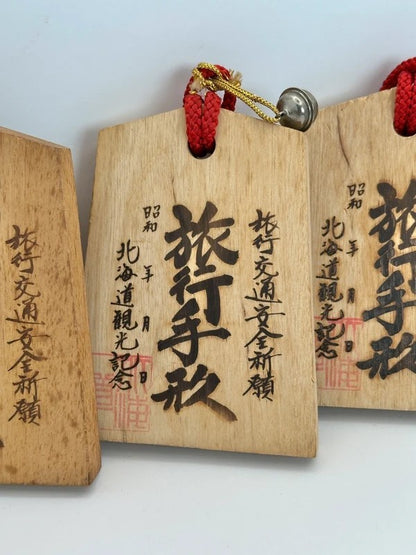 旅行交通安全祈願
旅行交通安全祈願
旅行手形
昭和 年 月 日
北海道觀光記念
旅行手形
昭和 年 月 日
北海道觀光記念